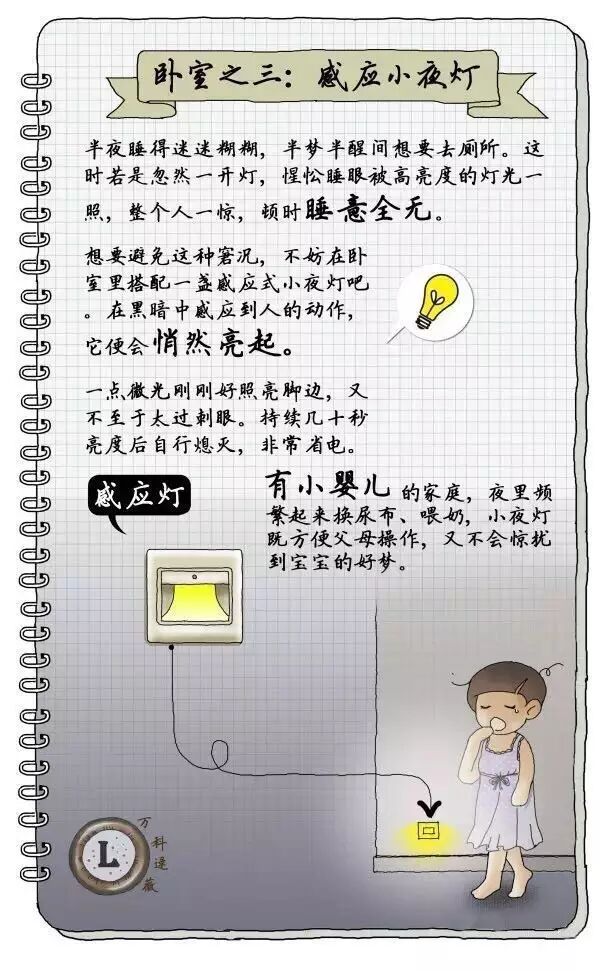 卧室之三：感应小夜灯
半夜睡得迷迷糊糊，半梦半醒间想要去厕所。这
时若是忽然一开灯，惺忪睡眼被高亮度的灯光一
照，整个人一惊，顿时睡意全无。
想要避免这种窘况，不妨在卧
室里搭配一盏感应式小夜灯吧
。在黑暗中感应到人的动作，
它便会悄然亮起。
一点微光刚刚好照亮脚边，又
不至于太过刺眼。持续几十秒
亮度后自行熄灭，非常省电。
感应灯
有小婴儿的家庭，夜里频
繁起来换尿布、喂奶，小夜灯
既方便父母操作，又不会惊扰
到宝宝的好梦。
L
万科逯薇